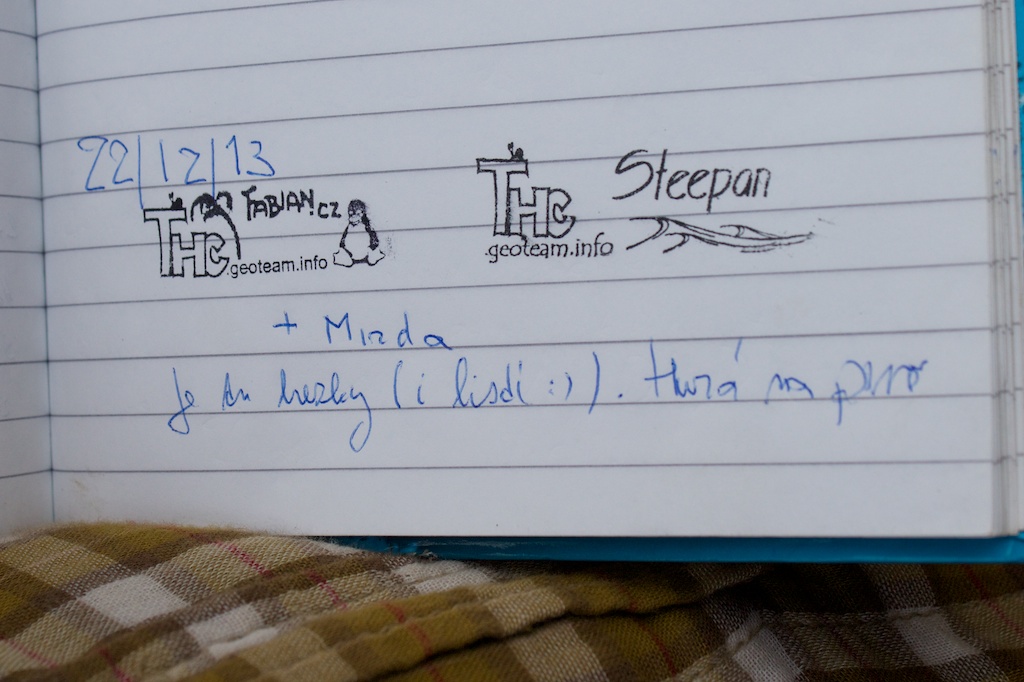 22/12/13
THC FABIAN.CZ
.geoteam.info
THC Steepan
.geoteam.info
+ Mirda
Je tu hezky (i lisdí :) ). Hurá na pivo